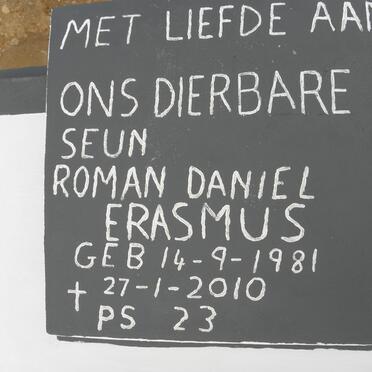 MET LIEFDE AAN
ONS DIERBARE
SEUN
ROMAN DANIEL
ERASMUS
GEB 14-9-1981
† 27-1-2010
PS 23